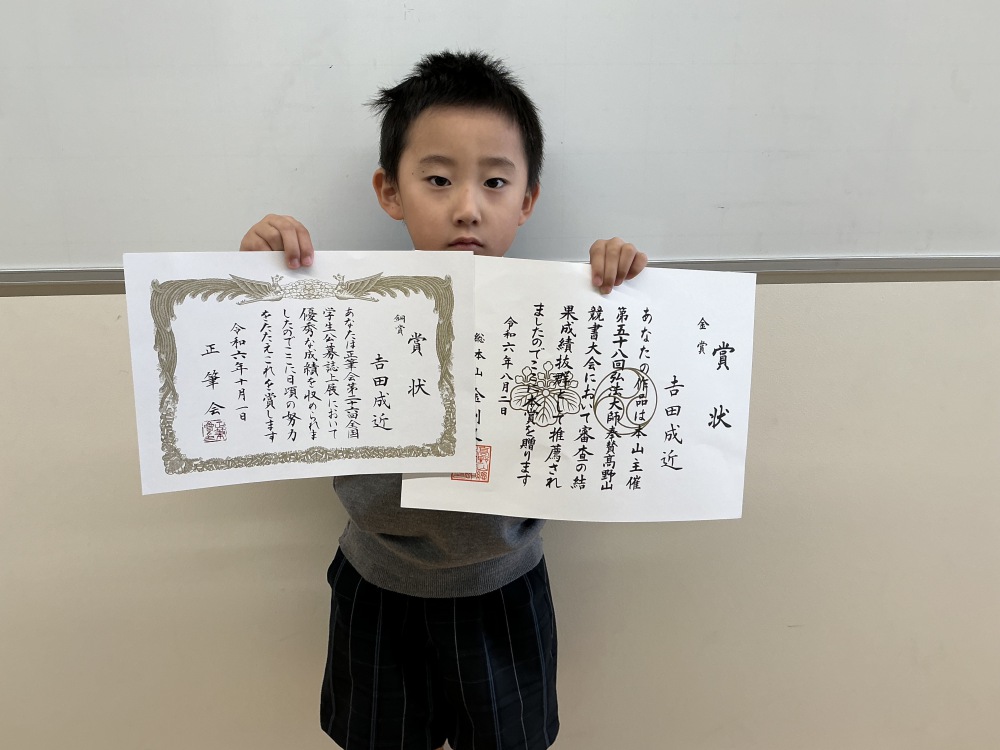 銅賞
賞状
𠮷田成近
あなたは正筆会第二十六回全国
学生公募誌上展において
優秀な成績を収められま
したのでここに日頃の努力
をたたえこれを賞します
令和六年十月一日
正筆会
金賞
賞状
𠮷田成近
あなたの作品は本山主催
第五十八回弘法大師奉賛高野山
競書大会において審査の結
果成績抜群として推薦され
ましたのでここに本賞を贈ります
令和六年八月二日
総本山金剛